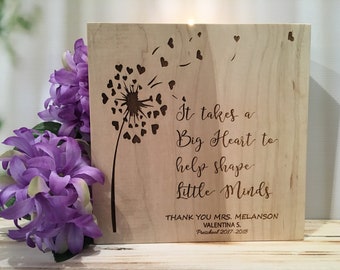 It takes a
Big Heart to
help shape
Little Minds
THANK YOU MRS. MELANSON
VALENTINA S.
Preschool 2017-2018